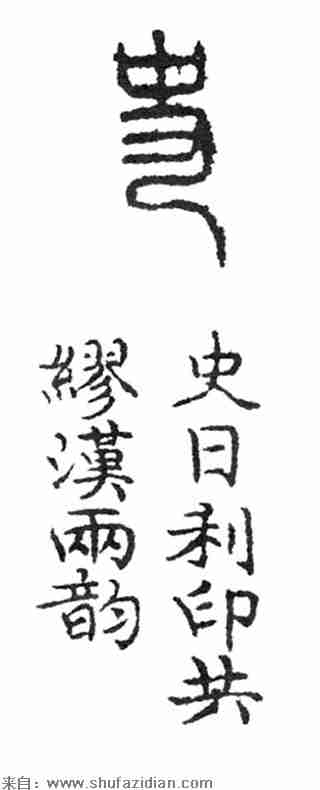 史
史日利印共
繆漢兩韵
来自：www.shufazidian.com